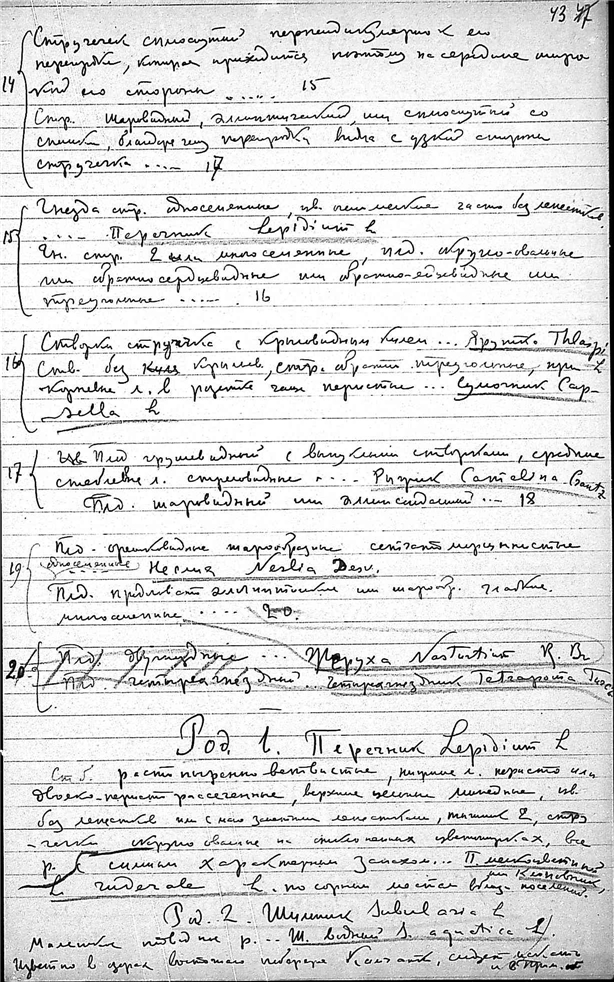 43
14 Стручечек сплюснутый перпендикулярно к его
перегородке, которая приходится поэтому на середине широ
кой его стороны ..... 15
Стр. шаровидный, эллиптический, или сплюснутый со
спинки, благодаря чему перегородка видна с узкой стороны
стручечка .... 17
15 Гнезда стр. односеменные, цв. очень мелкие часто без лепестков.
.... Перечник Lepidium L
Гн. стр. 2 или многосеменные, плд. округло-овальные
или обратносердцевидные или обратно-яйцевидные или
треугольные ..... 16
16 Створки стручечка с крыловидным килем ... Ярутка Thlaspi L
Ств. без крыльев, стр. обратно треугольные, при
корневые л. в розетке чаще перистые ... Сумочник Cap-
sella L
17 Плд грушевидный с выпуклыми створками, средние
стеблевые л. стреловидные .... Рыжик Camelina Crantz
Плд. шаровидный или эллипсоидальный ... 18
19 Плд. орешковидные шарообразные сетчато морщинистые
односеменные .... Неслия Neslia Desv.
Плд. продолговато эллиптические или шарообр. гладкие.
многосеменные ..... 20.
20 Плд. двугнездные ... Жеруха Nasturtium R Br
Плд. четырехгнездный .. Четырехгнездник Tetrapoma Turcz
Род 1. Перечник Lepidium L
Стб. растопыренно ветвистые, нижние л. перисто или
двояко-перист рассеченные, верхние цельные линейные, цв.
без лепестков или с мало заметными лепестками, тычинок 2, стру
-чечки округло овальные на отклоненных цветоножках, все
р. с сильным характерным запахом... П. мелкоцветный
или Клоповник,
L ruderale L. по сорным местам вблизи поселений.
Род. 2. Шильник Subularia L
Маленькое р... Ш. водный S. aquatica L.
Известно в озерах восточного побережья Камчатки, следует искать
и в Прим. об